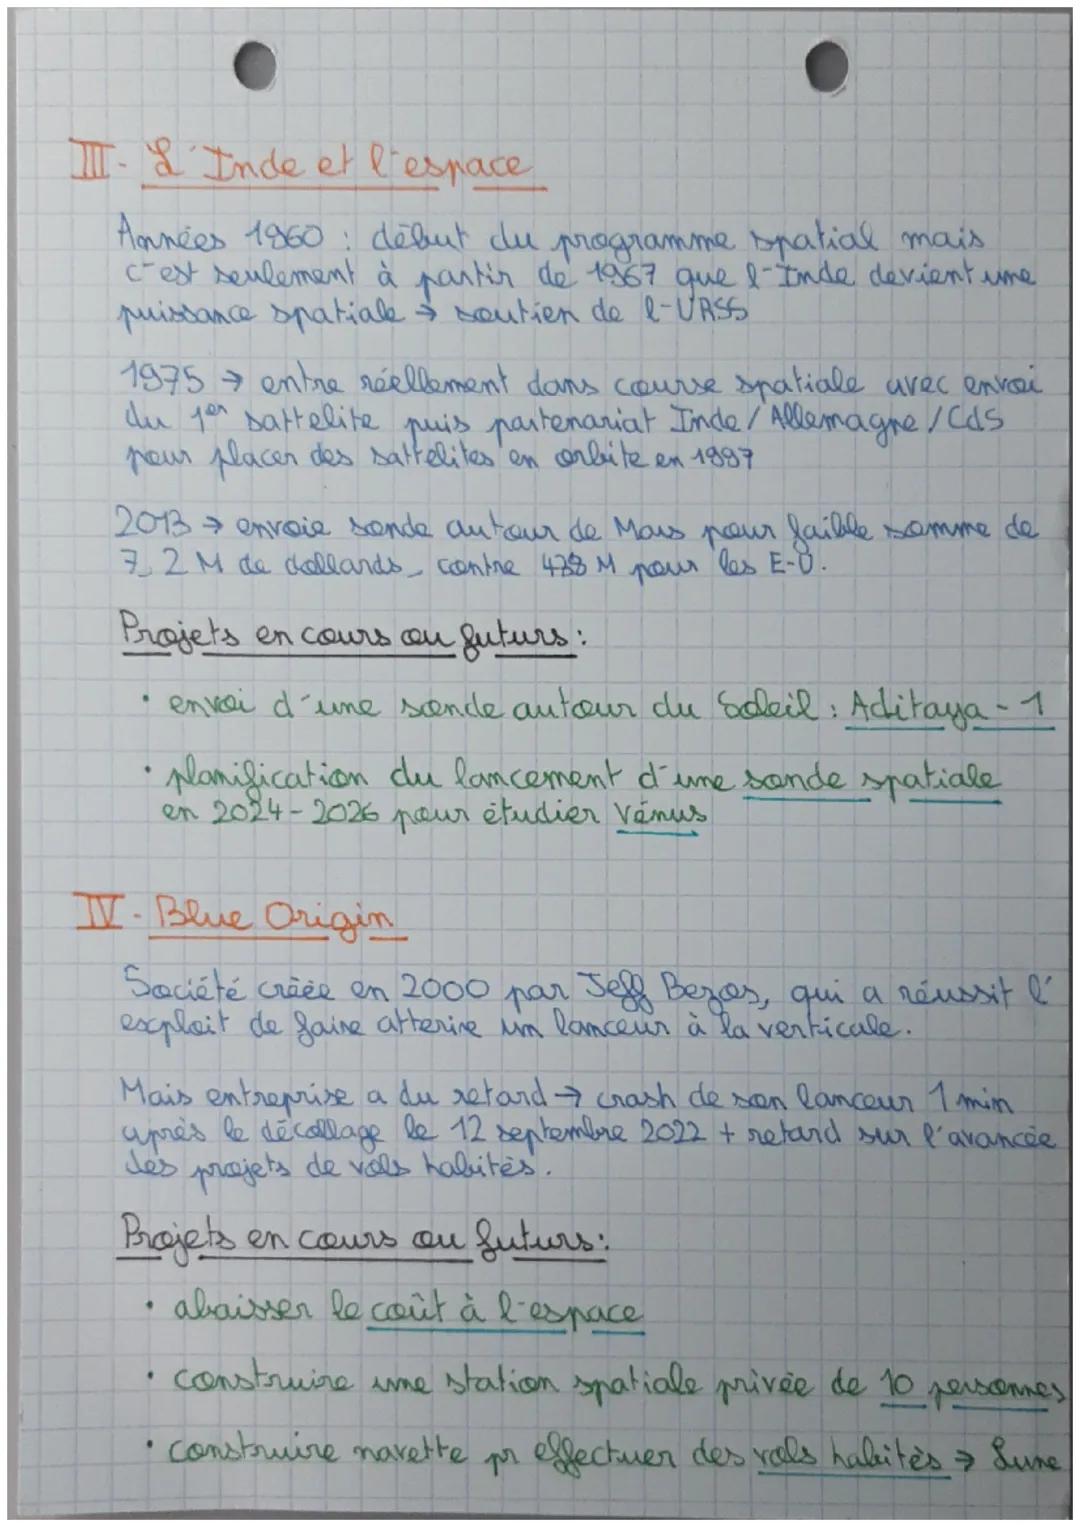 III - L'Inde et l'espace
Années 1960 : début du programme spatial mais
c'est seulement à partir de 1967 que l'Inde devient une
puissance spatiale → soutien de l'URSS
1975 → entre réellement dans course spatiale avec envoi
du 1er sattelite puis partenariat Inde / Allemagne / CdS
pour placer des sattelites en orbite en 1997
2013 → envoie sonde autour de Mars pour faible somme de
7,2 M de dollards, contre 438 M pour les E-U.
Projets en cours ou futurs :
• envoi d'une sonde autour du Soleil : Aditaya - 1
• planification du lancement d'une sonde spatiale
en 2024 - 2026 pour étudier Vénus
IV - Blue Origin
Société créée en 2000 par Jeff Bezos, qui a réussit l'
exploit de faire atterire un lanceur à la verticale.
Mais entreprise a du retard → crash de son lanceur 1 min
après le décollage le 12 septembre 2022 + retard sur l'avancée
des projets de vols habités.
Projets en cours ou futurs :
• abaisser le coût à l'espace
• construire une station spatiale privée de 10 personnes
• construire navette pr effectuer des vols habités → Lune